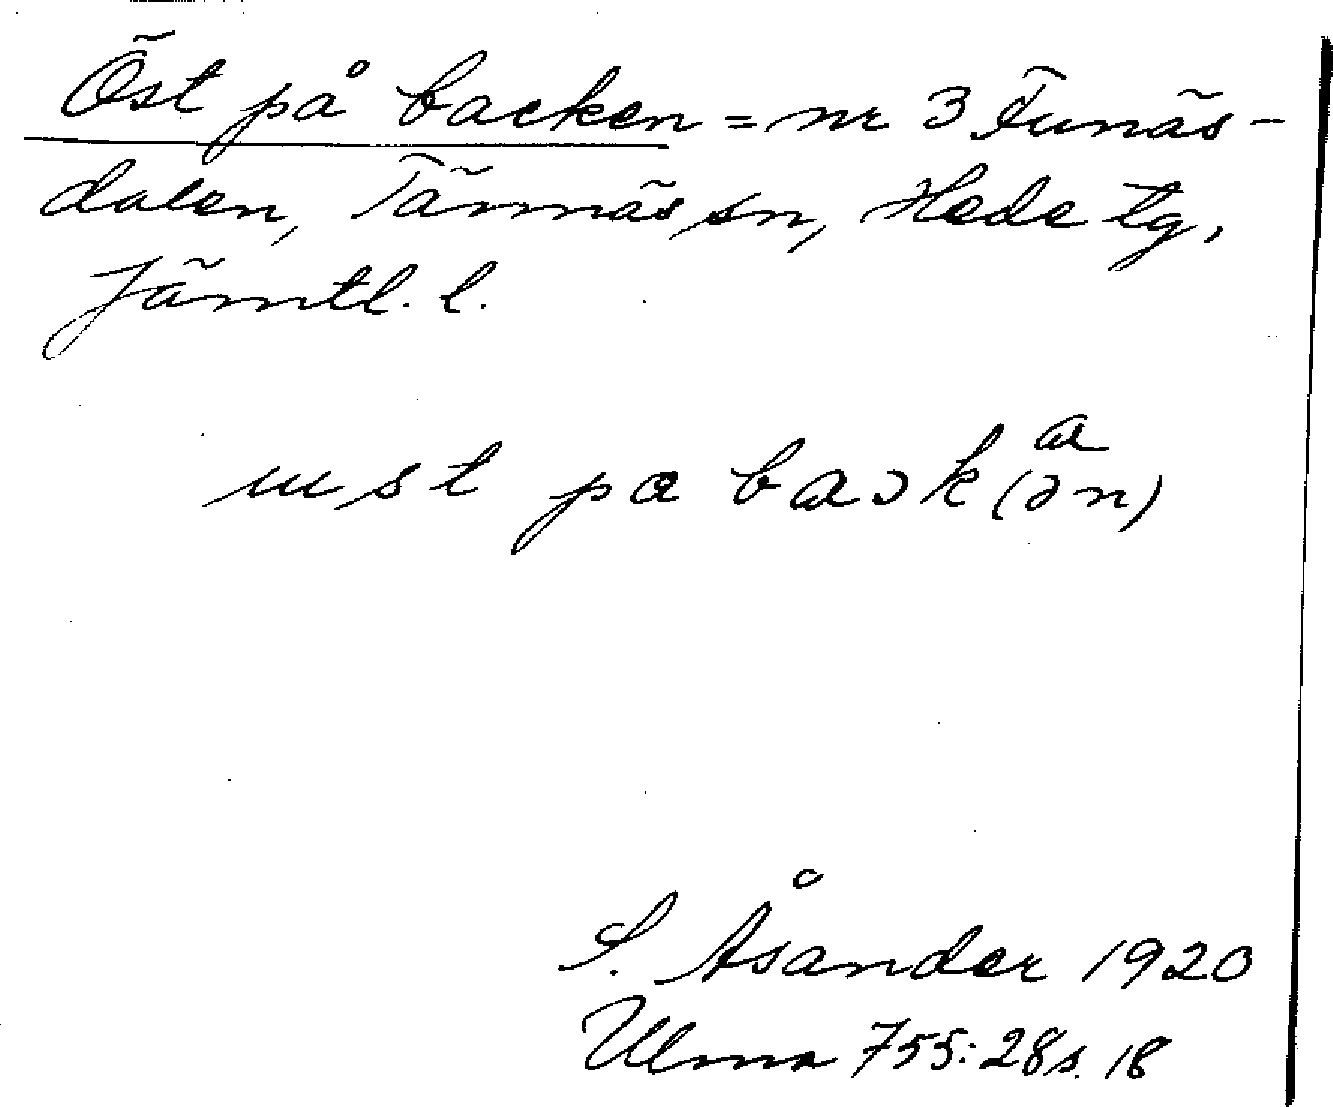 Öst på backen = nr 3 Funäs-
dalen, Tännäs sn, Hede tg,
Jämtl. l.
S. Åsander 1920
Ulma 755:28 s. 18